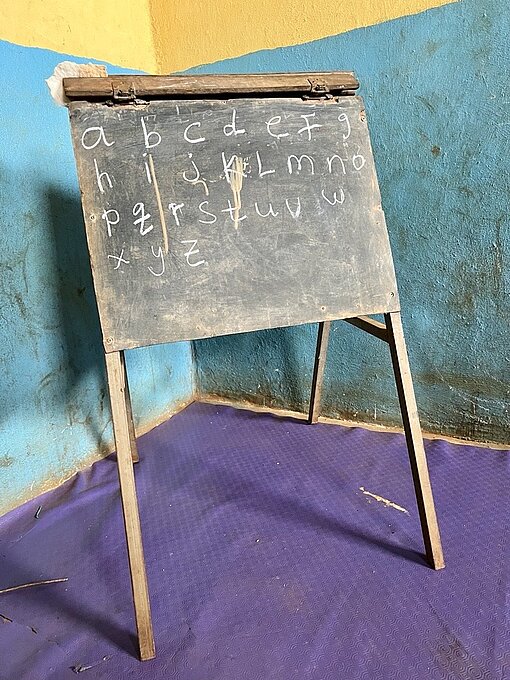 a b c d e F g
h i j K L m n o
p q r s t u v w
x y z